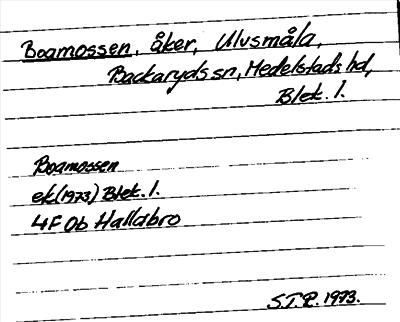 Boamossen, åker, Ulvsmåla,
Backaryds sn, Medelstads hd,
Blek. l.
Boamossen
ek (1973) Blek. l.
4F Ob Hallabro
S.T.P. 1973.